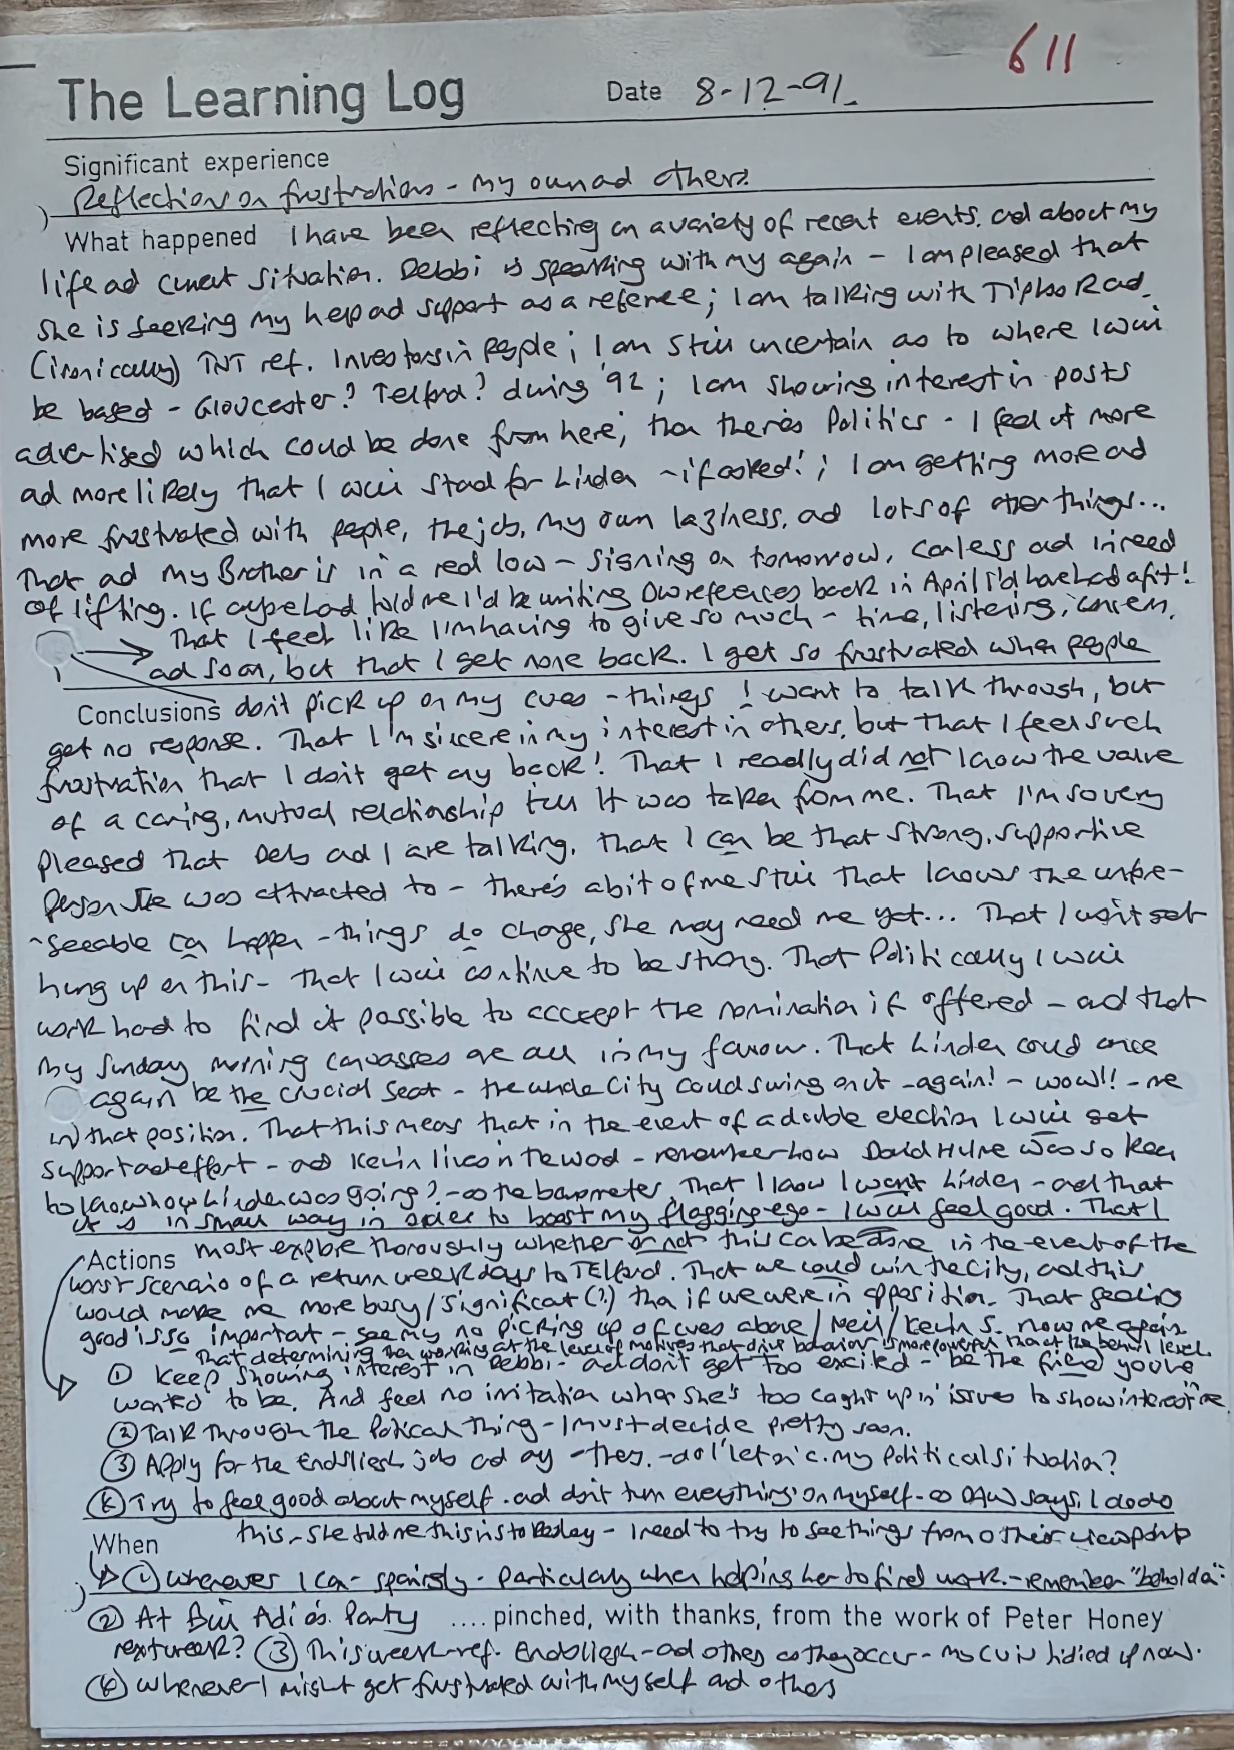 611
The Learning Log Date 8-12-91.
Significant experience
Reflection on frustrations - my own ad others.
What happened I have been reflecting on a variety of recent events. ad about my
life ad current situation. Debbi is speaking with my again - I am pleased that
she is seeking my help ad support as a referee; I am talking with Tiphoo Rad.
(ironically) TNT ref. Investors in people; I am still uncertain as to where I will
be based - Gloucester? Telford? during '92; I am showing interest in posts
advertised which could be done from here; than there's Politics - I feel it more
ad more likely that I will stand for Linden - if asked!; I am getting more ad
more frustrated with people, the job, my own laziness, ad lots of other things...
That ad my Brother is in a real low - signing on tomorrow, carless ad in need
of lifting. If anyone had told me I'd be writing DW references back in April I'd have had a fit!
That I feel like I'm having to give so much - time, listening, concern,
ad so on, but that I get none back. I get so frustrated when people
Conclusions don't pick up on my cues - things I want to talk through, but
get no response. That I'm sincere in my interest in others, but that I feel such
frustration that I don't get any back! That I really did not know the value
of a caring, mutual relationship till it was taken from me. That I'm so very
pleased that Debs ad I are talking, that I can be that strong, supportive
person she was attracted to - there's a bit of me still that knows the unfore-
-seeable can happen - things do change, she may need me yet... That I won't get
hung up on this - that I will continue to be strong. That Politically I will
work hard to find it possible to acccept the nomination if offered - ad that
my Sunday morning canvasses are all in my favour. That Linden could once
again be the crucial seat - the whole City could swing on it - again! - wow!! - me
in that position. That this means that in the event of a double election I will get
support ad effort - ad Kevin lives in the ward - remember how David Hulne was so keen
to know how Linden was going? - as the barometer. That I know I want Linden - ad that
it is in small way in order to boost my flagging ego - I will feel good. That I
Actions most explore thoroughly whether or not this can be done in the event of the
worst scenario of a return weekdays to Telford. That we could win the City, ad this
would make me more busy/significant (?) than if we were in opposition. That feeling
good is so important - see my no picking up of cues above / Neil / Kevin S. now me again.
That determining the working at the level of motives that drive behaviour is more powerful than at the behav'l level.
① Keep showing interest in Debbi - ad don't get too excited - be the friend you've
wanted to be. And feel no irritation when she's too caught up in issues to show interest in me.
② Talk through the Political thing - I must decide pretty soon.
③ Apply for the Endsliegh job ad any others - political situation?
④ Try to feel good about myself. ad don't turn everything on myself - as DAW says, I do do
this - she told me this - I need to try to see things from others viewpoints
When
① Whenever I can - sparingly - particularly when helping her to find work. - remember "beholda"
② At Bill Adi's Party .... pinched, with thanks, from the work of Peter Honey
next week? ③ This week - ref. Endsliegh - ad others as they occur - my CV is tidied up now.
④ Whenever I might get frustrated with myself and others